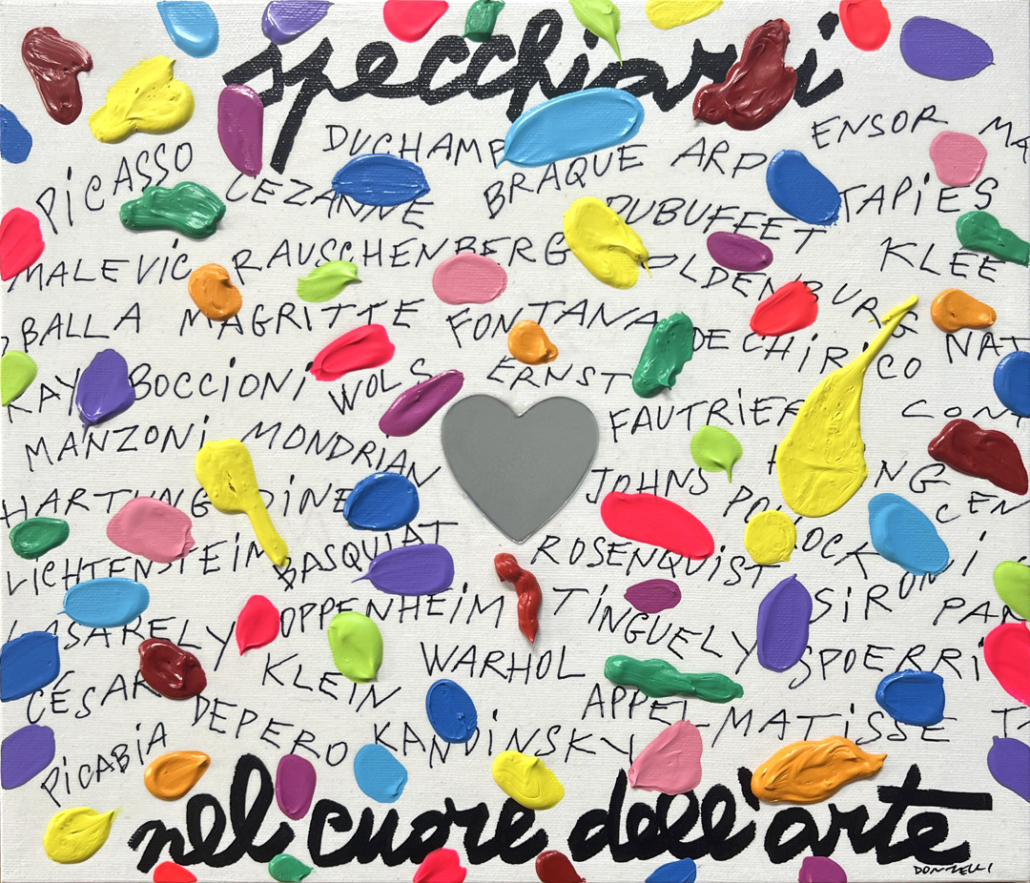 specchiarsi
DUCHAMP ENSOR MA
PiCASSO BRAQUE ARP
CEZANNE DUBUFFET TAPiES
MALEViC RAUSCHENBERG OLDENBURG KLEE
BALLA MAGRITTE FONTANA DE CHiRiCO NAT
RAY BOCCiONi WOLS ERNST
MANZONi MONDRiAN FAUTRiER CON
HARTUNG DiNE JOHNS POLLOCK CEN
LiCHTENSTEiN BASQUiAT ROSENQUiST SiRONi
VASARELY OPPENHEiM TiNGUELY PAN
CÉSAR KLEiN WARHOL SPOERRi
DEPERO KANDiNSKY APPEL MATiSSE TA
PiCABiA
nel cuore dell'arte
DONZELLI